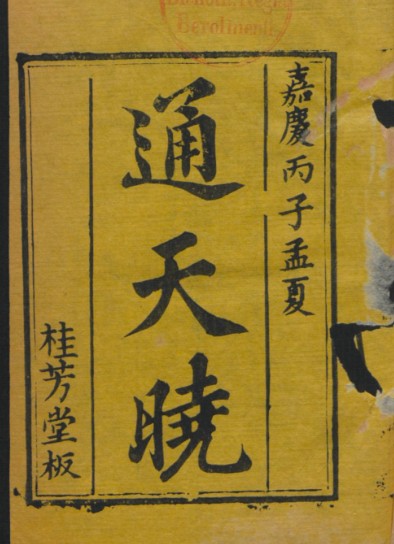 嘉慶丙子孟夏
通天曉
桂芳堂板
Berolinensis